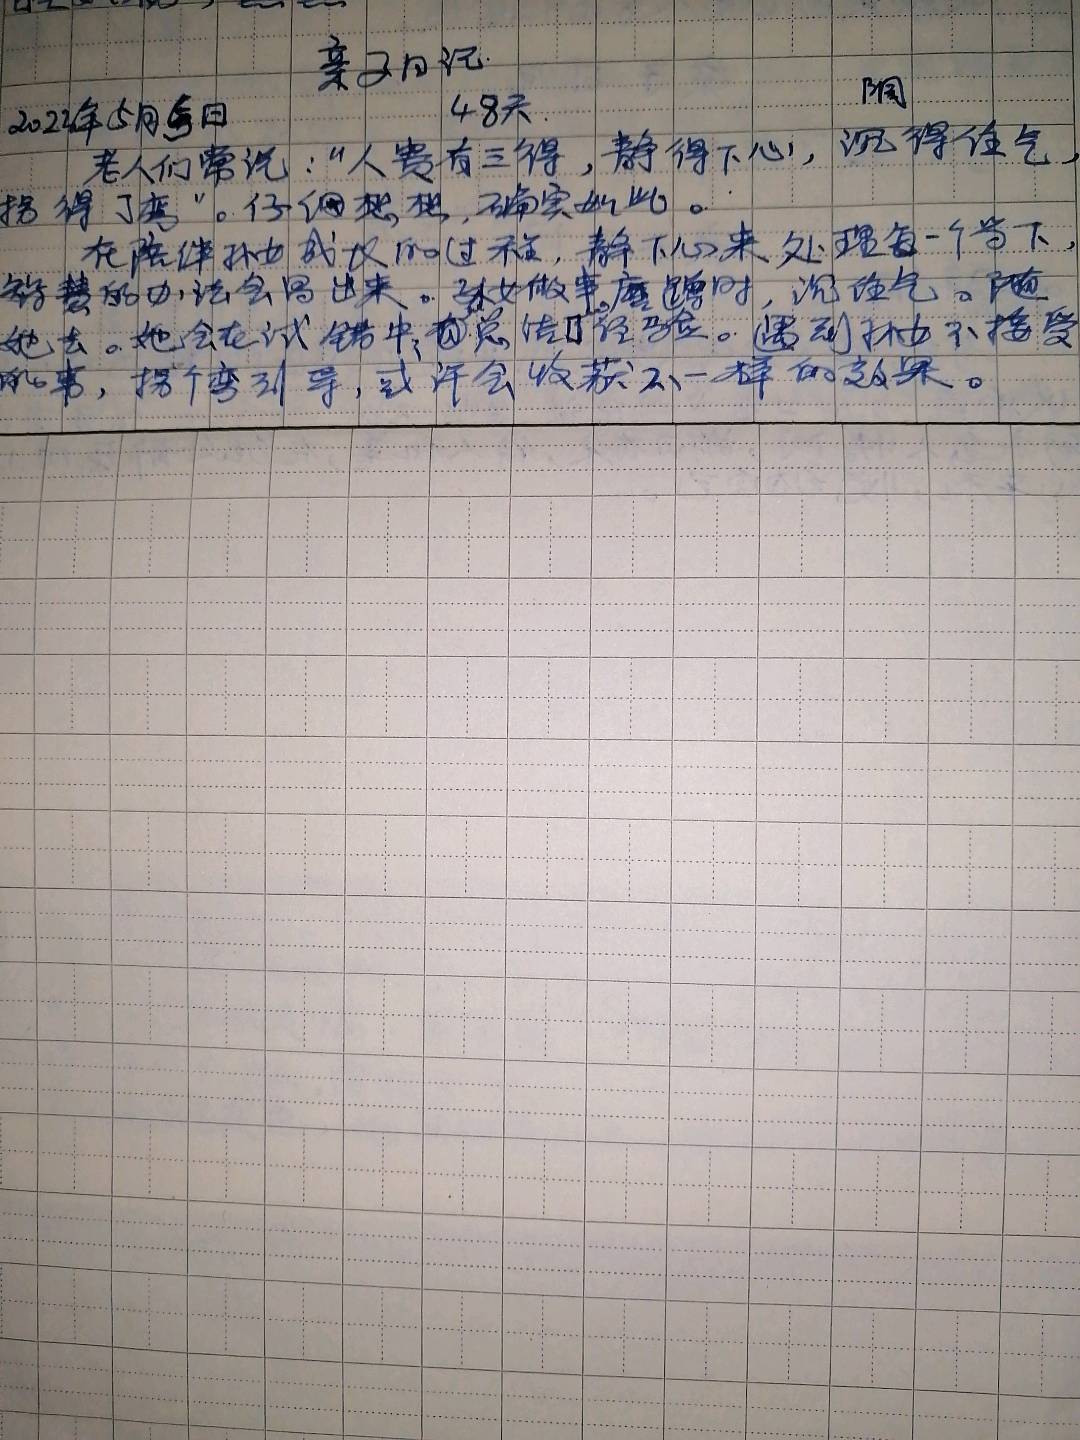 亲子日记
2022年5月5日 48天. 阴
老人们常说:"人贵有三得,静得下心,沉得住气,
拐得了弯"。仔细想想,确实如此。
在陪伴孙女成长的过程,静下心来处理每一个当下,
智慧的办法会冒出来。孙女做事磨蹭时,沉住气。随
她去。她会在试错中,自总结经验。遇到孙女不接受
的事,拐个弯引导,或许会收获不一样的效果。